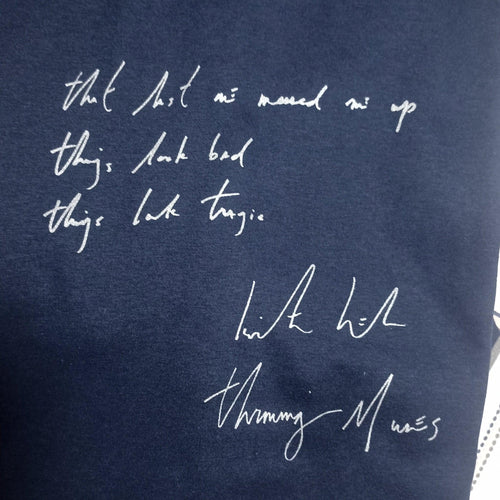 that last messed me up
things look bad
things look tragic
kristin hersh
throwing Muses